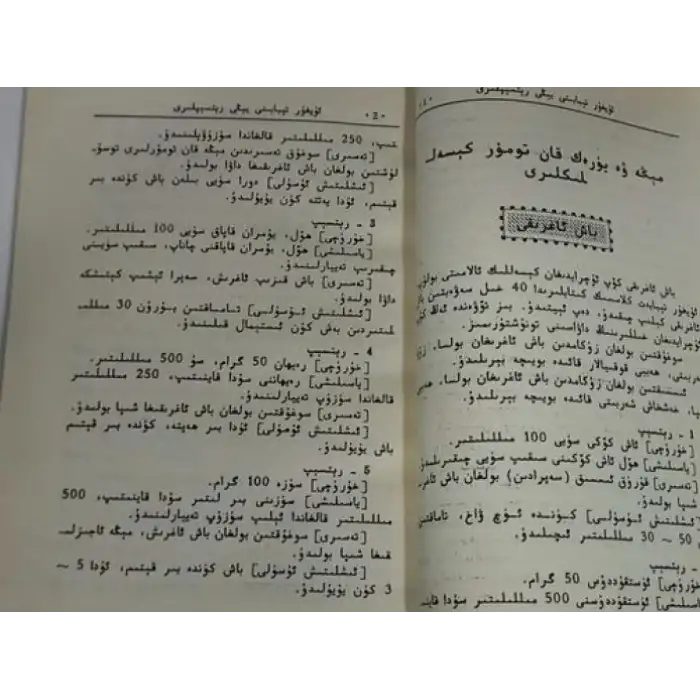 ئۇيغۇر تىبابىتى يېڭى رېتسېپلىرى
مېڭە ۋە يۈرەك قان تومۇر كېسەل
لىكلىرى
باش ئاغرىقى
باش ئاغرىقى كۆپ ئۇچرايدىغان كېسەللىك ئالامىتى بولۇپ
ئۇيغۇر تىبابەت كلاسسىك كىتابلىرىدا 40 خىل سەۋەبتىن باش
ئاغرىقى كېلىپ چىقىدۇ، دەپ ئېيتىدۇ. بىز تۆۋەندە ئەڭ كۆپ
ئۇچرايدىغان خىللىرىنىڭ داۋاسىنى تونۇشتۇرىمىز.
سوغۇقتىن بولغان زۇكامدىن باش ئاغرىغان بولسا،
شەربىتى، ھەببى قوقىيالار قائىدە بويىچە بېرىلىدۇ.
ئىسسىقتىن بولغان زۇكامدىن باش ئاغرىغان بولسا،
خەشخاش شەربىتى قائىدە بويىچە بېرىلىدۇ.
1 - رېتسېپ
[خۇرۇچى] ئاش كۆكى سۈيى 100 مىللىلىتىر.
[ياسىلىشى] ھۆل ئاش كۆكىنى سىقىپ سۈيى چىقىرىلىدۇ
[تەسىرى] قۇرۇق ئىسسىق (سەپرادىن) بولغان باش ئاغ
شىپا بولىدۇ.
[ئىشلىتىش ئۇسۇلى] كۈندە ئۈچ ۋاخ، تاماقتىن
50 ~ 30 مىللىلىتىر ئىچىلىدۇ.
- رېتسېپ
[خۇرۇچى] ئۇستقۇددۇس 50 گرام.
[ياسىلىشى] ئۇستقۇددۇسنى 500 مىللىلىتىر سۇدا
ئۇيغۇر تىبابىتى يېڭى رېتسېپلىرى ·2·
تىپ، 250 مىللىلىتىر قالغاندا سۈزۈۋېلىنىدۇ.
[تەسىرى] سوغۇق تەسىرىدىن مېڭە قان تومۇرلىرى توسۇ
لۇشتىن بولغان باش ئاغرىقىغا داۋا بولىدۇ.
[ئىشلىتىش ئۇسۇلى] دورا سۈيى بىلەن باش كۈندە بىر
قېتىم، ئۇدا يەتتە كۈن يۇيۇلىدۇ.
3 - رېتسېپ
[خۇرۇچى] ھۆل، يۇمران قاپاق سۈيى 100 مىللىلىتىر.
[ياسىلىشى] ھۆل، يۇمران قاپاقنى چاناپ، سىقىپ سۈيىنى
چىقىرىپ تەييارلىنىدۇ.
[تەسىرى] باش قىزىپ ئاغرىش، سەپرا ئېشىپ كېتىشكە
داۋا بولىدۇ.
[ئىشلىتىش ئۇسۇلى] تاماقتىن بۇرۇن 30 مىللى
لىتىردىن بەش كۈن ئىستېمال قىلىنىدۇ.
4 - رېتسېپ
[خۇرۇچى] رەيھان 50 گرام، سۇ 500 مىللىلىتىر.
[ياسىلىشى] رەيھاننى سۇدا قاينىتىپ، 250 مىللىلىتىر
قالغاندا سۈزۈپ تەييارلىنىدۇ.
[تەسىرى] سوغۇقتىن بولغان باش ئاغرىقىغا شىپا بولىدۇ.
[ئىشلىتىش ئۇسۇلى] ئۇدا بىر ھەپتە، كۈندە بىر قېتىم
باش يۇيۇلىدۇ.
5 - رېتسېپ
[خۇرۇچى] سۆزە 100 گرام.
[ياسىلىشى] سۆزىنى بىر لىتىر سۇدا قاينىتىپ، 500
مىللىلىتىر قالغاندا ئېلىپ سۈزۈپ تەييارلىنىدۇ.
[تەسىرى] سوغۇقتىن بولغان باش ئاغرىش، مېڭە ئاجىزلى
قىغا شىپا بولىدۇ.
[ئىشلىتىش ئۇسۇلى] باش كۈندە بىر قېتىم، ئۇدا 5 ~
3 كۈن يۇيۇلىدۇ.